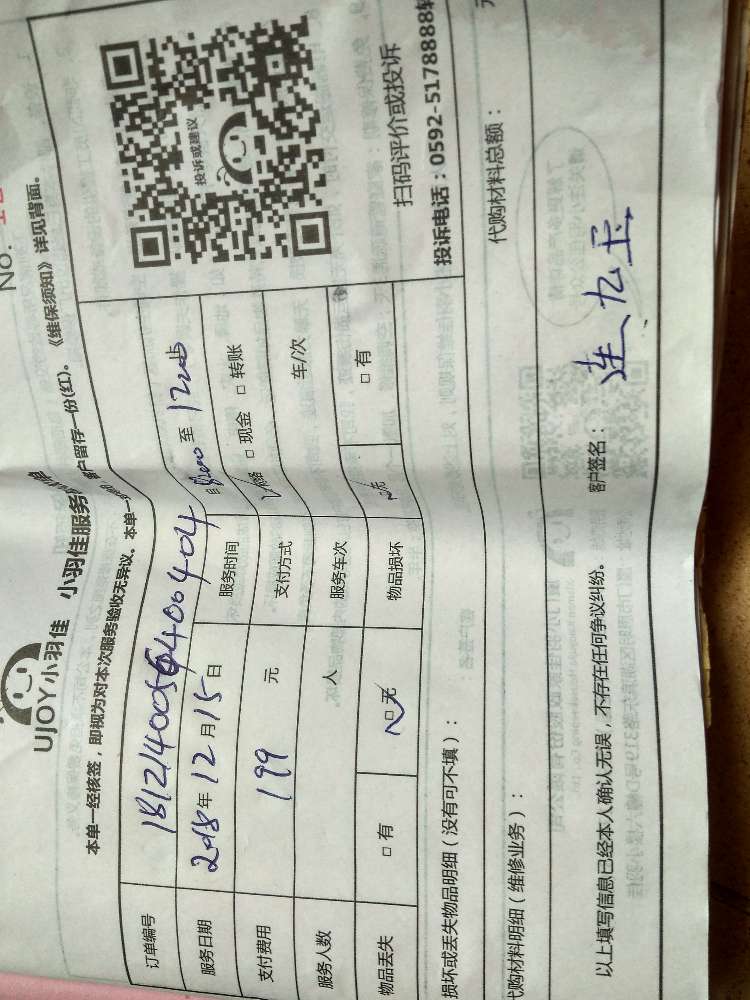 No.
UJOY小羽佳 小羽佳服务
本单一经核签，即视为对本次服务验收无异议。本单一
户留存一份(红)。《维保须知》详见背面。
订单编号
服务日期 2018年12月15日 服务时间 至 12
支付费用 199 元 支付方式 □现金 □转账
服务人数 人 服务车次 车/次
物品丢失 □有 □无 物品损坏 □有
投诉或建议
扫码评价或投诉
投诉电话：0592-5178888转
损坏或丢失物品明细（没有可不填）：
代购材料明细（维修业务）：
代购材料总额：
以上填写信息已经本人确认无误，不存在任何争议纠纷。
客户签名：